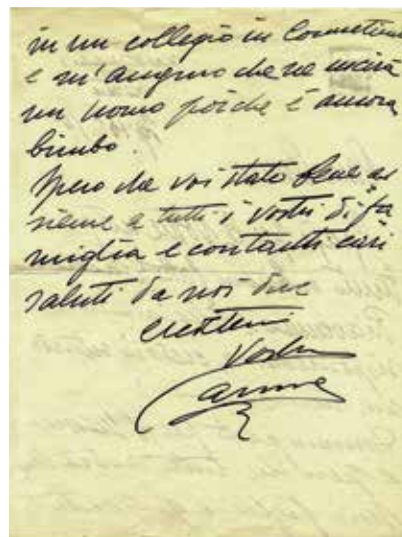 in un collegio in
e m'auguro che ne uscirà
un uomo poichè è ancora
bimbo.
Spero che voi state bene as
sieme a tutti i vostri di fa
miglia e con tanti cari
saluti da noi due
credetemi
Vostra